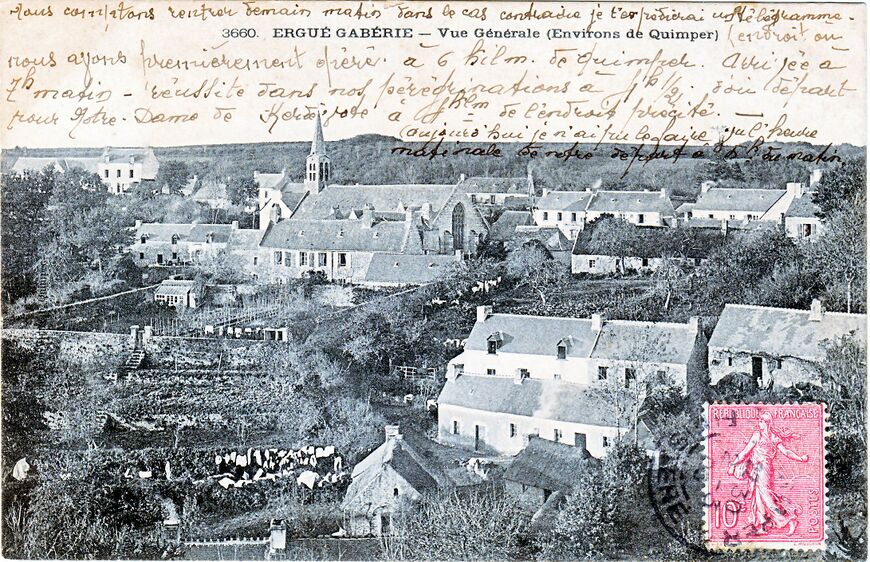 Nous comptons rentrer demain matin dans le cas contraire je t'expédierai un télégramme.
3660. ERGUÉ GABÉRIE — Vue Générale (Environs de Quimper)
(endroit où
nous avons premièrement opéré. à 6 kilm. de Quimper. Arrivée à
7h matin - réussite dans nos pérégrinations à 1h 1/2. départ
pour Notre-Dame de Kerdévote à 4 kilm de l'endroit précité. —
(aujourd'hui je n'ai pu le faire vu l'heure
matinale de notre départ à 5h du matin
RÉPUBLIQUE FRANÇAISE
10
POSTES